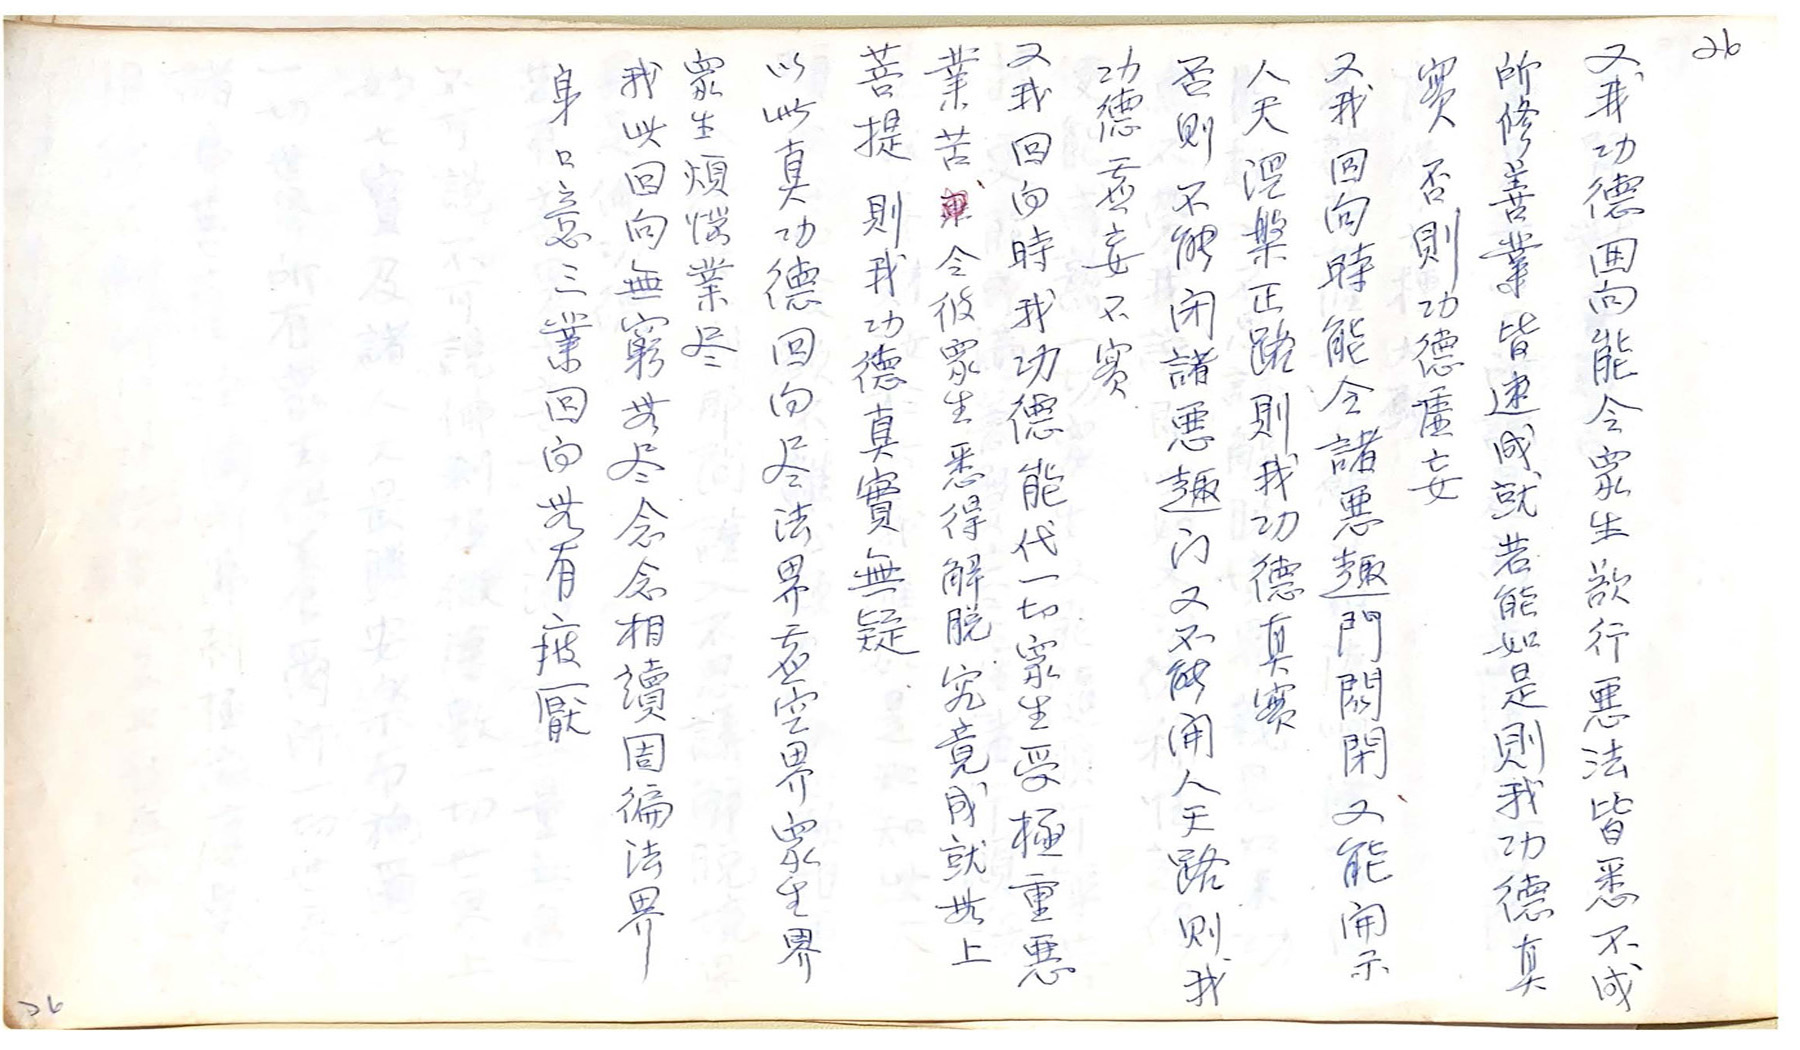 26
又我功德回向能令眾生欲行惡法皆悉不成
所修善業皆速成就若能如是則我功德真
實否則功德虛妄
又我回向時能令諸惡趣門関閉又能開示
人天涅槃正路則我功德真實
否則不能闭諸惡趣门又不能開人天路则我
功德虚妄不實
又我回向時我功德能代一切眾生受極重惡
業苦令彼眾生悉得解脱究竟成就无上
菩提則我功德真實無疑
以此真功德回向尽法界虚空界眾生界
眾生煩惱業尽
我此回向無窮无尽念念相續周徧法界
身口意三業回向无有疲厭
26